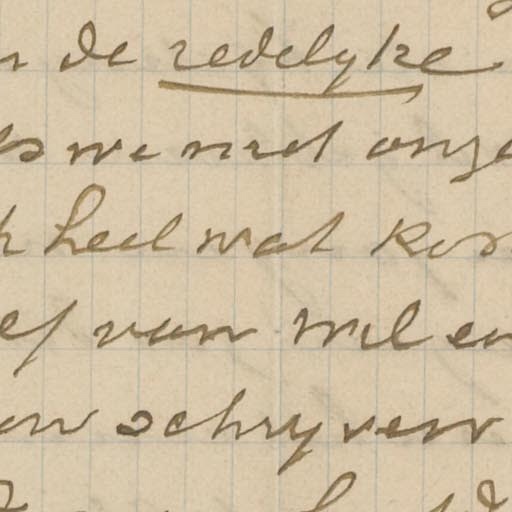 de redelyke
we niet onze
heel wat kos
van wil en
schryven